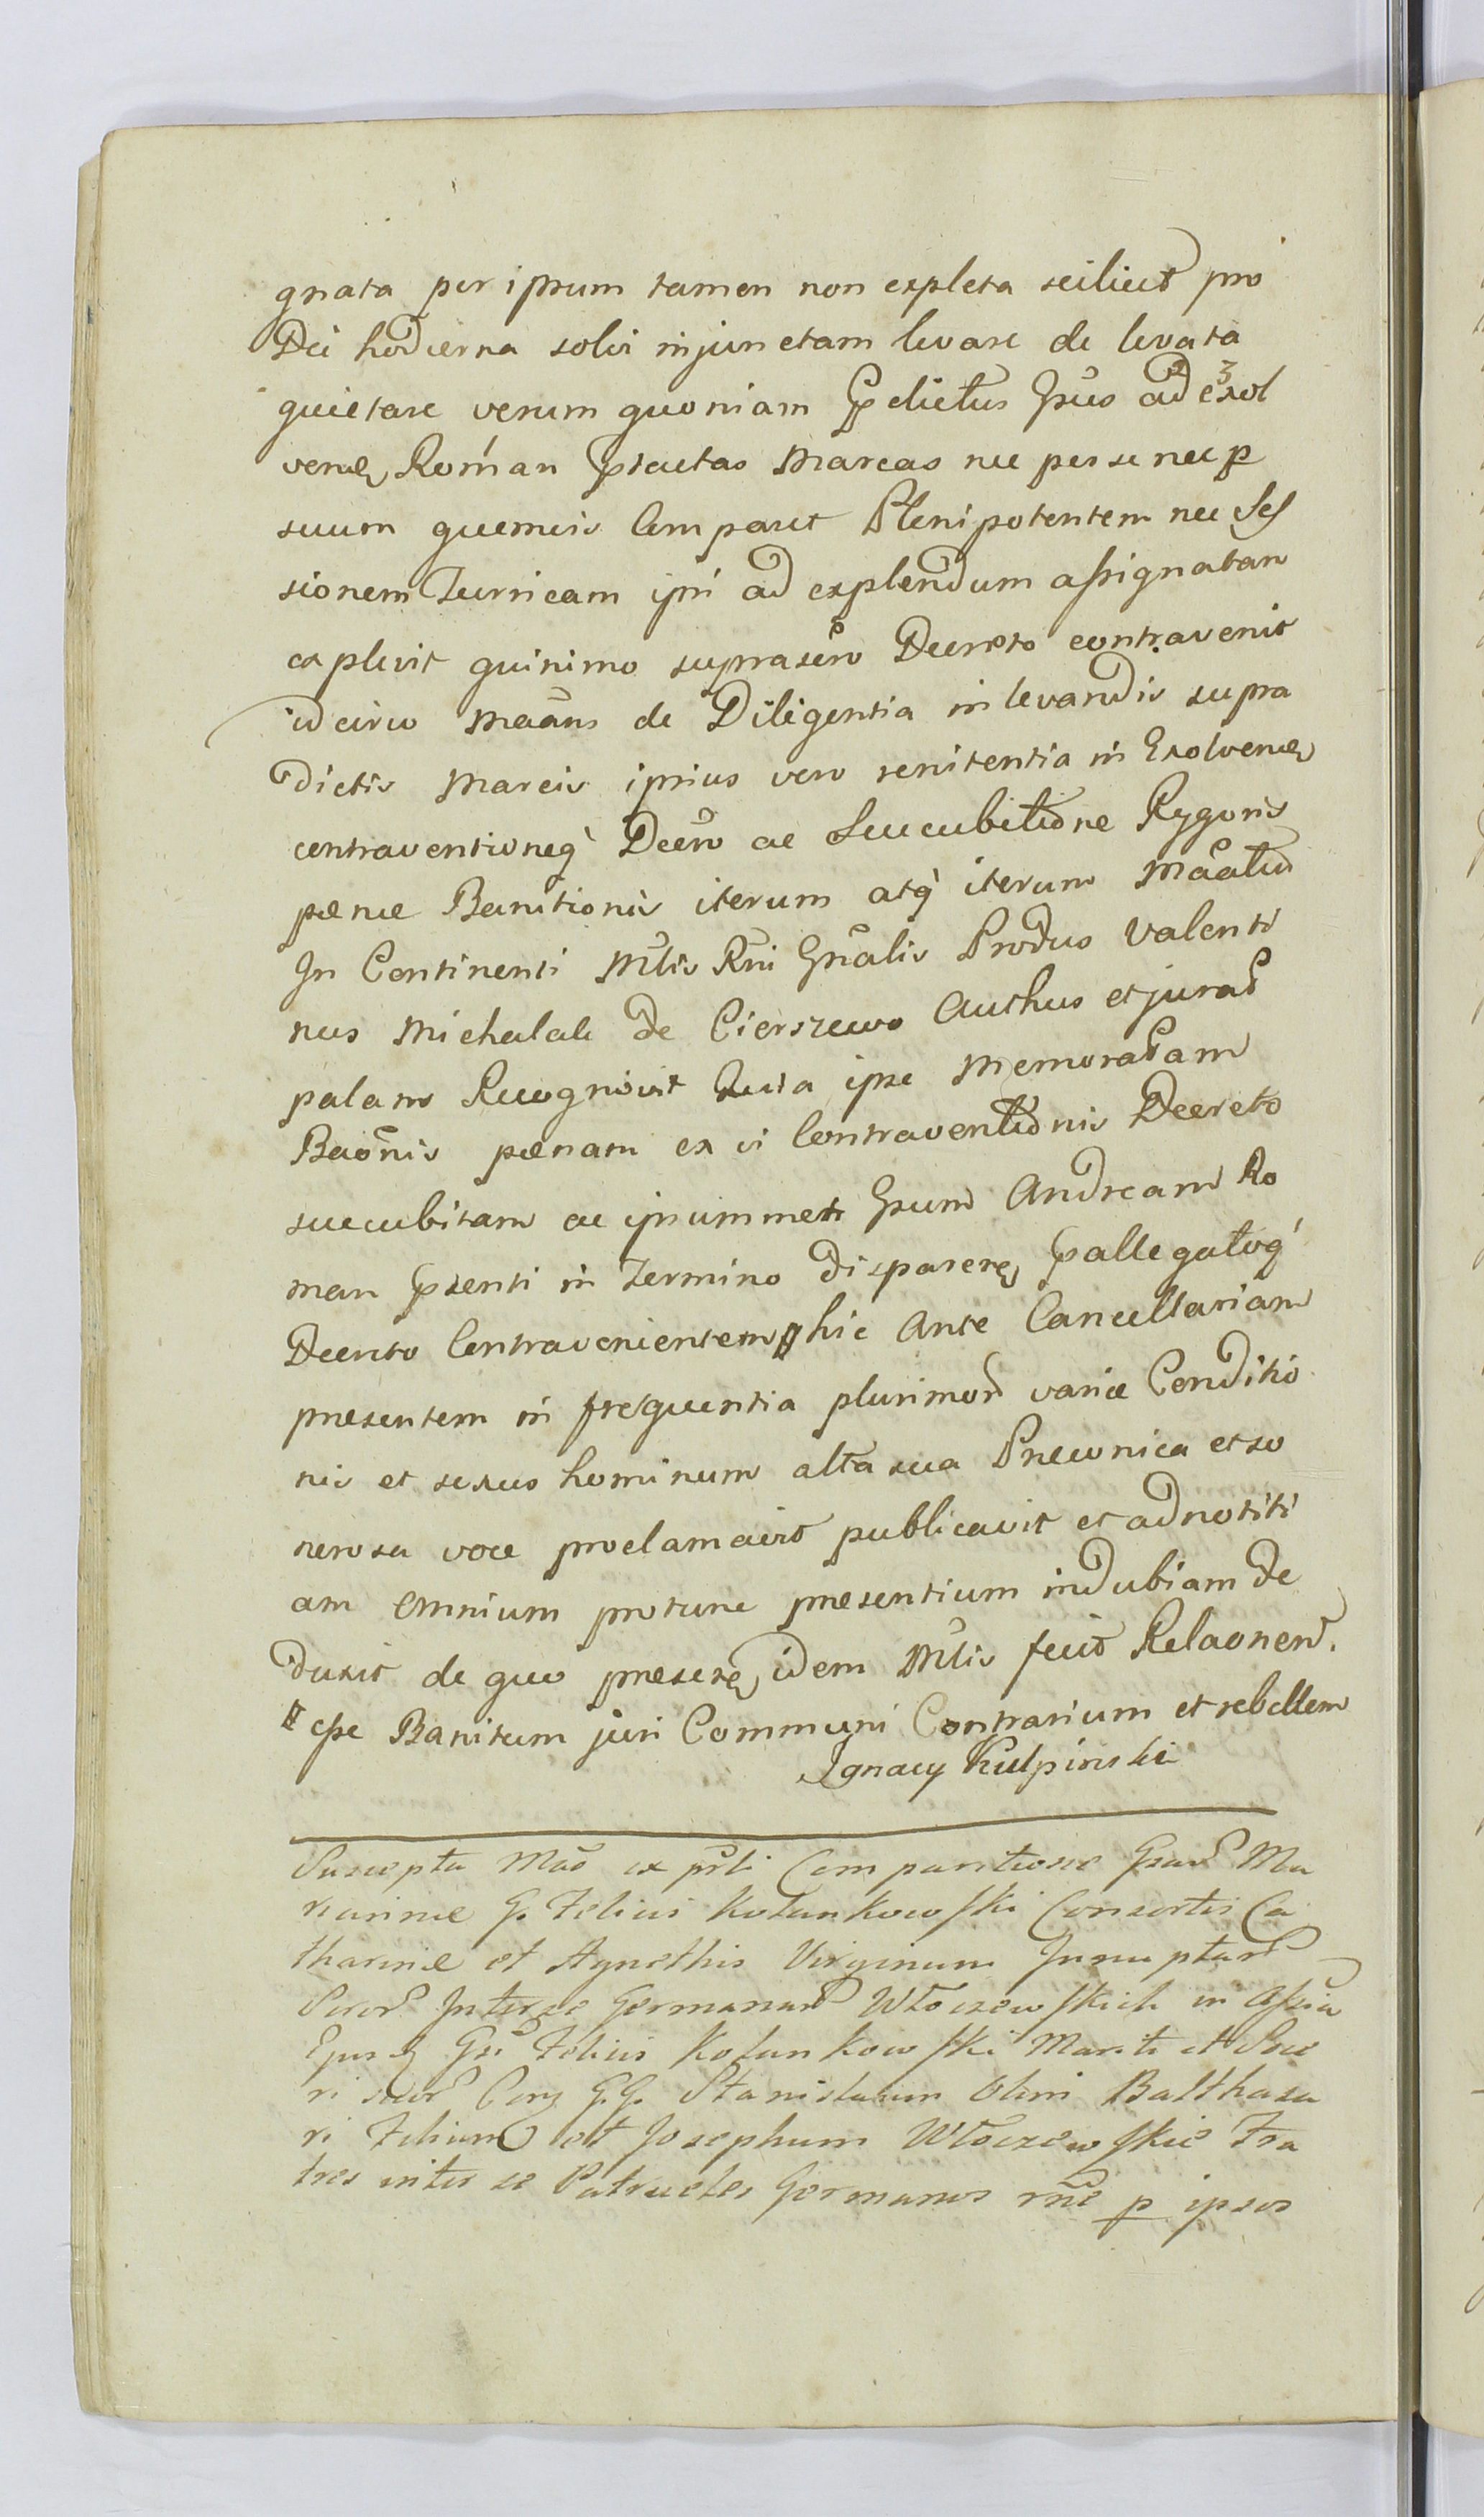 gnata per ipsum tamen non expleta scilicet pro
Die hodierna solvi injunctam levare de levata
quietare verum quoniam Pdictus Gsus ad exol
vend Roman Ptactas Marcas nec per se nec p
suum quemvis Comparet Plenipotentem nec Ses
sionem Turricam ipsi ad explendum assignatam
explevit quinimo suprascro Decreto contravenit
idcirco Maans de Diligentia in levandis supra
dictis Marcis ipsius vero renitentia in Exolvend
contraventioneq Decro ac Succubitione Rygoris
pænæ Banitionis iterum atq iterum Maatur
In Continenti Mtlis Rni Gnalis Produs Valenti
nus Michalak de Cierszewo Authus et jurat
palam Recognovit Quia ipse Memoratam
Baonis pænam ex vi Contraventionis Decreto
succubitam ac ipsummet Gsum Andream Ro
man Psenti in Termino disparend Pallegatoq
Decreto Contravenientem # hic Ante Cancellariam
presentem in frequentia plurimor variæ Conditio
nis et sexus hominum alta sua Preconica et so
nerosa voce proclamavit publicavit et ad notiti
am Omnium protunc presentium indubiam de
duxit de quo presend idem Mtlis fecit Relaonem.
# esse Banitum juri Communi Contrarium et rebellem
Ignacy Kulpinski
Suscepta Mao ex prti Comparitione Gsar Ma
riannæ G. Felicis Kolankowski Consortis Ca
tharinæ et Agnethis Virginum Innuptar
Soror Inter se Germanar Włoczewskich in Assia
Ejusd Gsi Felicis Kolankowski Mariti et Soce
ri suar Cong G.G. Stanislaum Olim Balthasa
ri Filium et Josephum Włoczewskie Fra
tres inter se Patrueles Germanos rne p ipsos